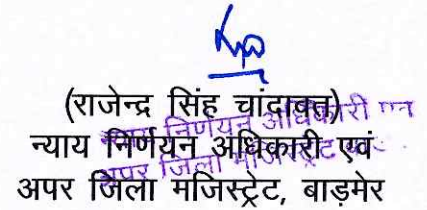 (राजेन्द्र सिंह चांदावत)
न्याय निर्णयन अधिकारी एवं
अपर जिला मजिस्ट्रेट, बाड़मेर
न्याय निर्णयन अधिकारी एवं
अपर जिला मजिस्ट्रेट